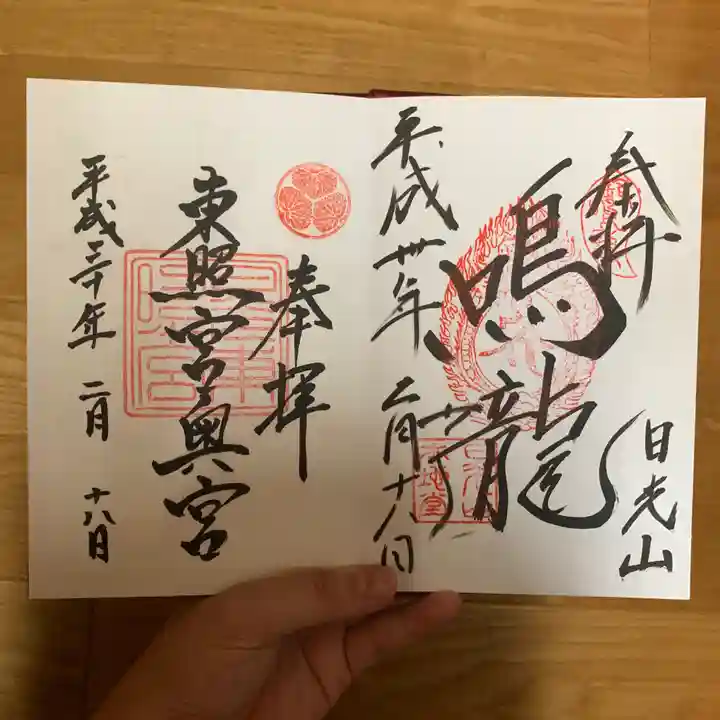 奉拝
日光山
鳴龍
平成卅年二月十八日
薬師堂
奉拝
東照宮奥宮
平成三十年二月十八日